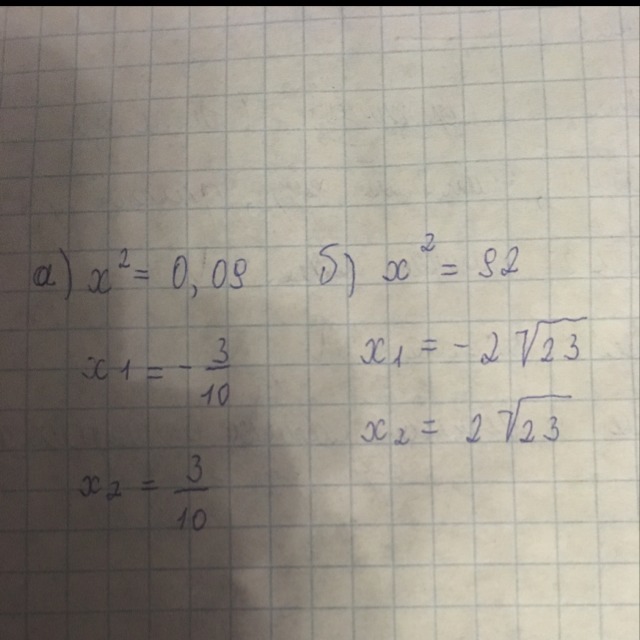 а) x² = 0,09
x₁ = - 3/10
x₂ = 3/10
б) x² = 92
x₁ = - 2√23
x₂ = 2√23